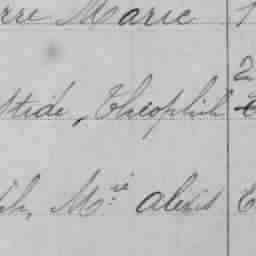 rre Marie 1
stide, Théophile 2
ph, M^rie alexis